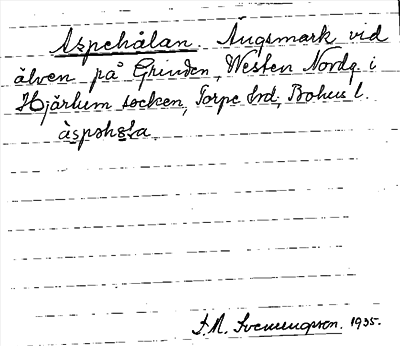 Aspehålan. Ängsmark vid
älven på Grinden, Westen Nordg. i
Hjärtum socken, Torpe hrd, Bohus l.
àspohɑ̀la
S. M. Svenungson. 1935.